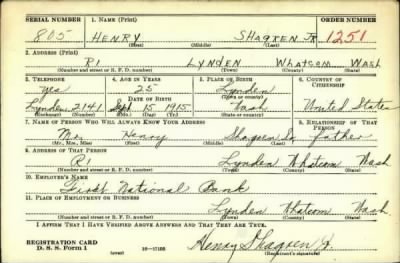 SERIAL NUMBER 1. NAME (Print) ORDER NUMBER
805 HENRY SHAGREN JR 1251
(First) (Middle) (Last)
2. ADDRESS (Print)
R1 LYNDEN WHATCOM WASH
(Number and street or R. F. D. number) (Town) (County) (State)
3. TELEPHONE 4. AGE IN YEARS 5. PLACE OF BIRTH 6. COUNTRY OF CITIZENSHIP
yes 25 Lynden
DATE OF BIRTH (Town or county)
Lynden 2141 Sept 15 1915 Wash United States
(Exchange) (Number) (Mo.) (Day) (Yr.) (State or country)
7. NAME OF PERSON WHO WILL ALWAYS KNOW YOUR ADDRESS 8. RELATIONSHIP OF THAT PERSON
Mr. Henry Shagren Sr. father
(Mr., Mrs., Miss) (First) (Middle) (Last)
9. ADDRESS OF THAT PERSON
R1 Lynden Whatcom Wash
(Number and street or R. F. D. number) (Town) (County) (State)
10. EMPLOYER'S NAME
First National Bank
11. PLACE OF EMPLOYMENT OR BUSINESS
Lynden Whatcom Wash
(Number and street or R. F. D. number) (Town) (County) (State)
I AFFIRM THAT I HAVE VERIFIED ABOVE ANSWERS AND THAT THEY ARE TRUE.
REGISTRATION CARD
D. S. S. Form 1 (over) Henry Shagren Jr.
(Registrant's signature)